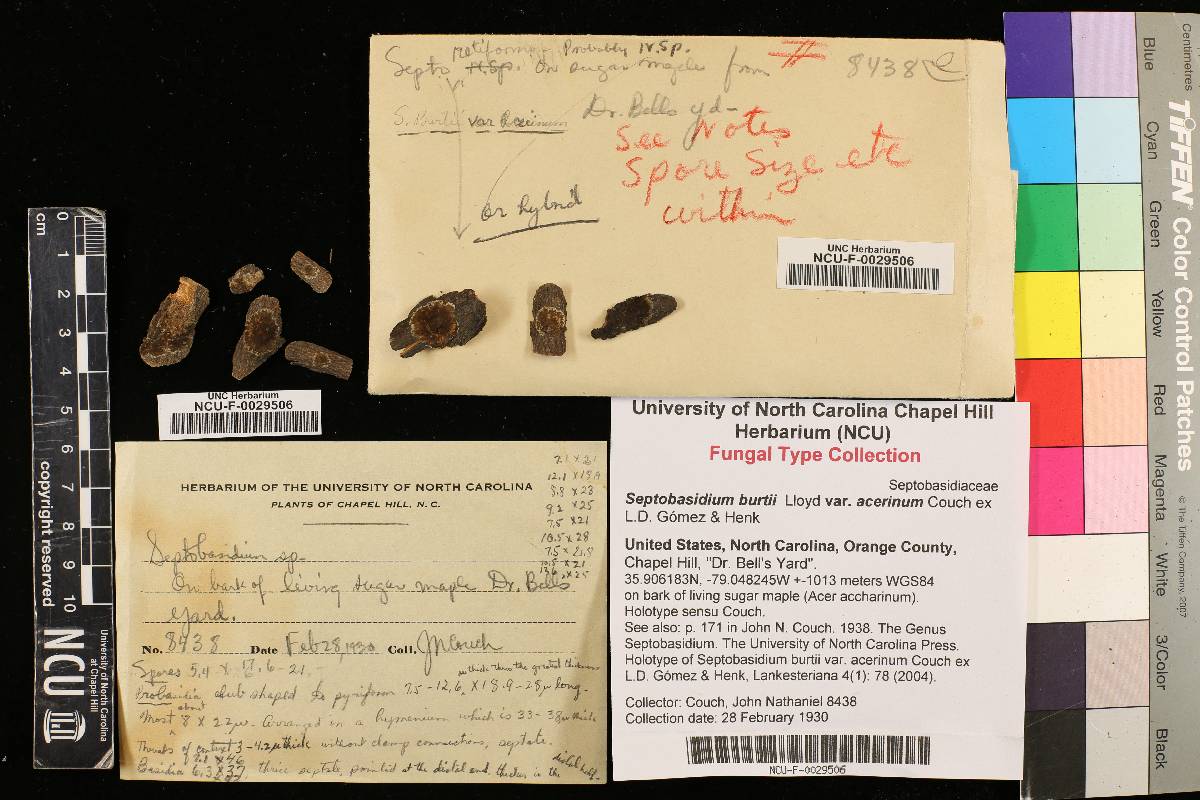 retiforme Probably N.Sp.
Septo N.Sp. On sugar maple from # 8438 e
S. Burtii var acerinum Dr. Bells yd-
See Notes
Spore Size etc
within
or hybrid
UNC Herbarium
NCU-F-0029506
UNC Herbarium
NCU-F-0029506
0 cm
1
2
3
4
5
6
7
8
9
10
copyright reserved
NCU
University of North Carolina
at Chapel Hill
Herbarium
HERBARIUM OF THE UNIVERSITY OF NORTH CAROLINA
PLANTS OF CHAPEL HILL, N. C.
7.1 x 21
12.1 x 18.9
8.8 x 23
9.2 x 25
7.5 x 21
10.5 x 28
7.5 x 21.8
10.5 x 21
12.6 x 25
Septobasidium sp.
On bark of living sugar maple Dr. Bells
yard.
No. 8438 Date Feb 28, 1930 Coll. JN Couch
Spores 5,4 x 17,6-21,-
Probasidia club shaped to pyriform 7.5-12,6, x 18.9-28µ long-
most about 8 x 22µ. Arranged in a hymenium which is 33-38µ thick
Threads of context 3-4.2µ thick without clamp connections, septate.
Basidia 6.3 x 37, three septate, pointed at the distal end, thicker in the distal half.
University of North Carolina Chapel Hill
Herbarium (NCU)
Fungal Type Collection
Septobasidiaceae
Septobasidium burtii Lloyd var. acerinum Couch ex
L.D. Gómez & Henk
United States, North Carolina, Orange County,
Chapel Hill, "Dr. Bell's Yard".
35.906183N, -79.048245W +-1013 meters WGS84
on bark of living sugar maple (Acer accharinum).
Holotype sensu Couch.
See also: p. 171 in John N. Couch. 1938. The Genus
Septobasidium. The University of North Carolina Press.
Holotype of Septobasidium burtii var. acerinum Couch ex
L.D. Gómez & Henk, Lankesteriana 4(1): 78 (2004).
Collector: Couch, John Nathaniel 8438
Collection date: 28 February 1930
NCU-F-0029506
Centimetres
TIFFEN Color Control Patches
© The Tiffen Company, 2007
Blue
Cyan
Green
Yellow
Red
Magenta
White
3/Color
Black